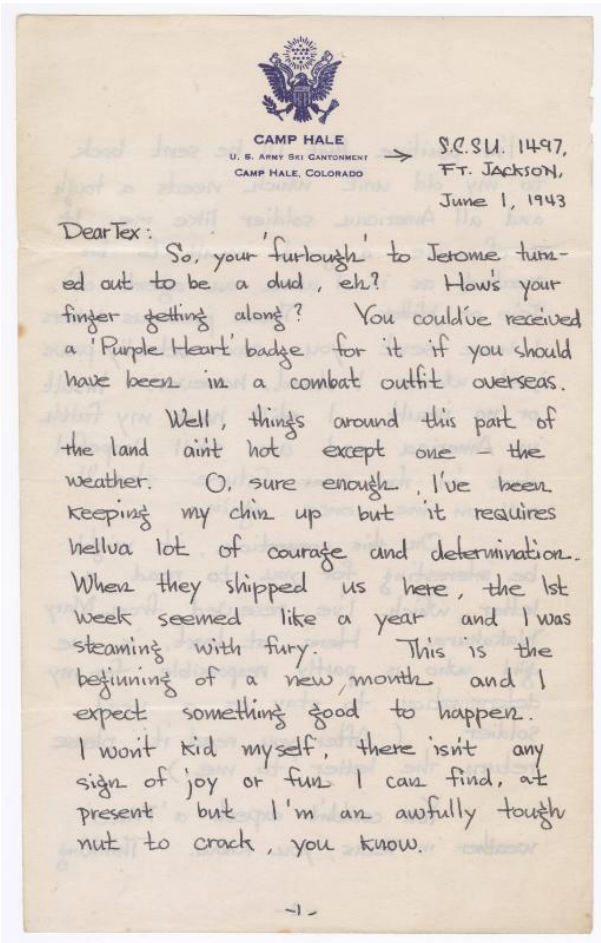 CAMP HALE
U. S. ARMY SKI CANTONMENT
CAMP HALE, COLORADO
→ S.C.S.U. 1497,
FT. JACKSON,
June 1, 1943
Dear Tex:
So, your 'furlough' to Jerome turn-
ed out to be a dud, eh? How's your
finger getting along? You could've received
a 'Purple Heart' badge for it if you should
have been in a combat outfit overseas.
Well, things around this part of
the land ain't hot except one – the
weather. O, sure enough, I've been
keeping my chin up but it requires
hellva lot of courage and determination.
When they shipped us here, the 1st
week seemed like a year and I was
steaming with fury. This is the
beginning of a new month and I
expect something good to happen.
I won't kid myself, there isn't any
sign of joy or fun I can find, at
present but I'm an awfully tough
nut to crack, you know.
-1-